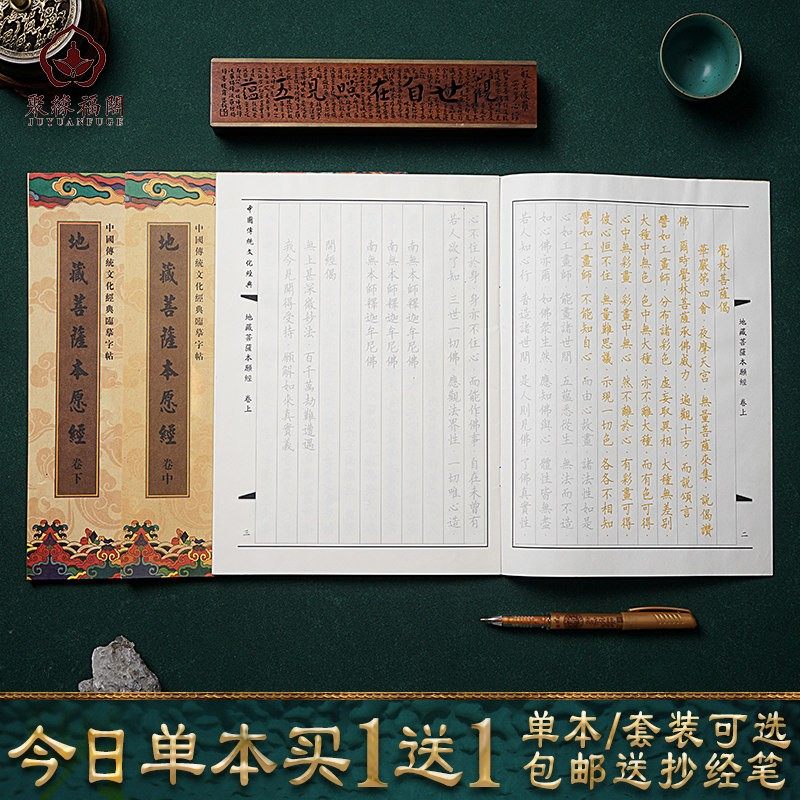 聚緣福閣
JUYUANFUGE
中國傳統文化經典臨摹字帖
地藏菩薩本愿經 卷下
中國傳統文化經典臨摹字帖
地藏菩薩本愿經 卷中
地藏菩薩本願經 卷上
二
覺林菩薩偈
華嚴第四會 夜摩天宮 無量菩薩來集 說偈讚
佛·爾時覺林菩薩承佛威力 遍觀十方 而說頌言·
譬如工畫師 分布諸彩色 虛妄取異相 大種無差別·
大種中無色 色中無大種 亦不離大種 而有色可得·
心中無彩畫 彩畫中無心 然不離於心 有彩畫可得·
彼心恒不住 無量難思議 示現一切色 各各不相知·
譬如工畫師 不能知自心 而由心故畫 諸法性如是
心如工畫師 能畫諸世間 五蘊悉從生 無法而不造
如心佛亦爾 如佛眾生然 應知佛與心 體性皆無盡
若人知心行 普造諸世間 是人則見佛 了佛真實性
心不住於身 身亦不住心 而能作佛事 自在未曾有
若人欲了知 三世一切佛 應觀法界性 一切唯心造
南無本師釋迦牟尼佛
南無本師釋迦牟尼佛
南無本師釋迦牟尼佛
開經偈
無上甚深微妙法 百千萬劫難遭遇
我今見聞得受持 願解如來真實義
中國傳統文化經典
地藏菩薩本願經 卷上
三
今日单本买1送1
单本/套装可选
包邮送抄经笔